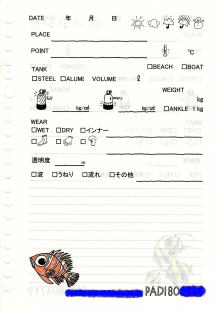 DATE 年 月 日
PLACE
POINT ℃
TANK □BEACH □BOAT
□STEEL □ALUMI VOLUME ℓ
WEIGHT
kg/㎠ kg/㎠ kg
□ANKLE 1kg
WEAR
□WET □DRY □インナー
透明度 m
□波 □うねり □流れ □その他
PADI